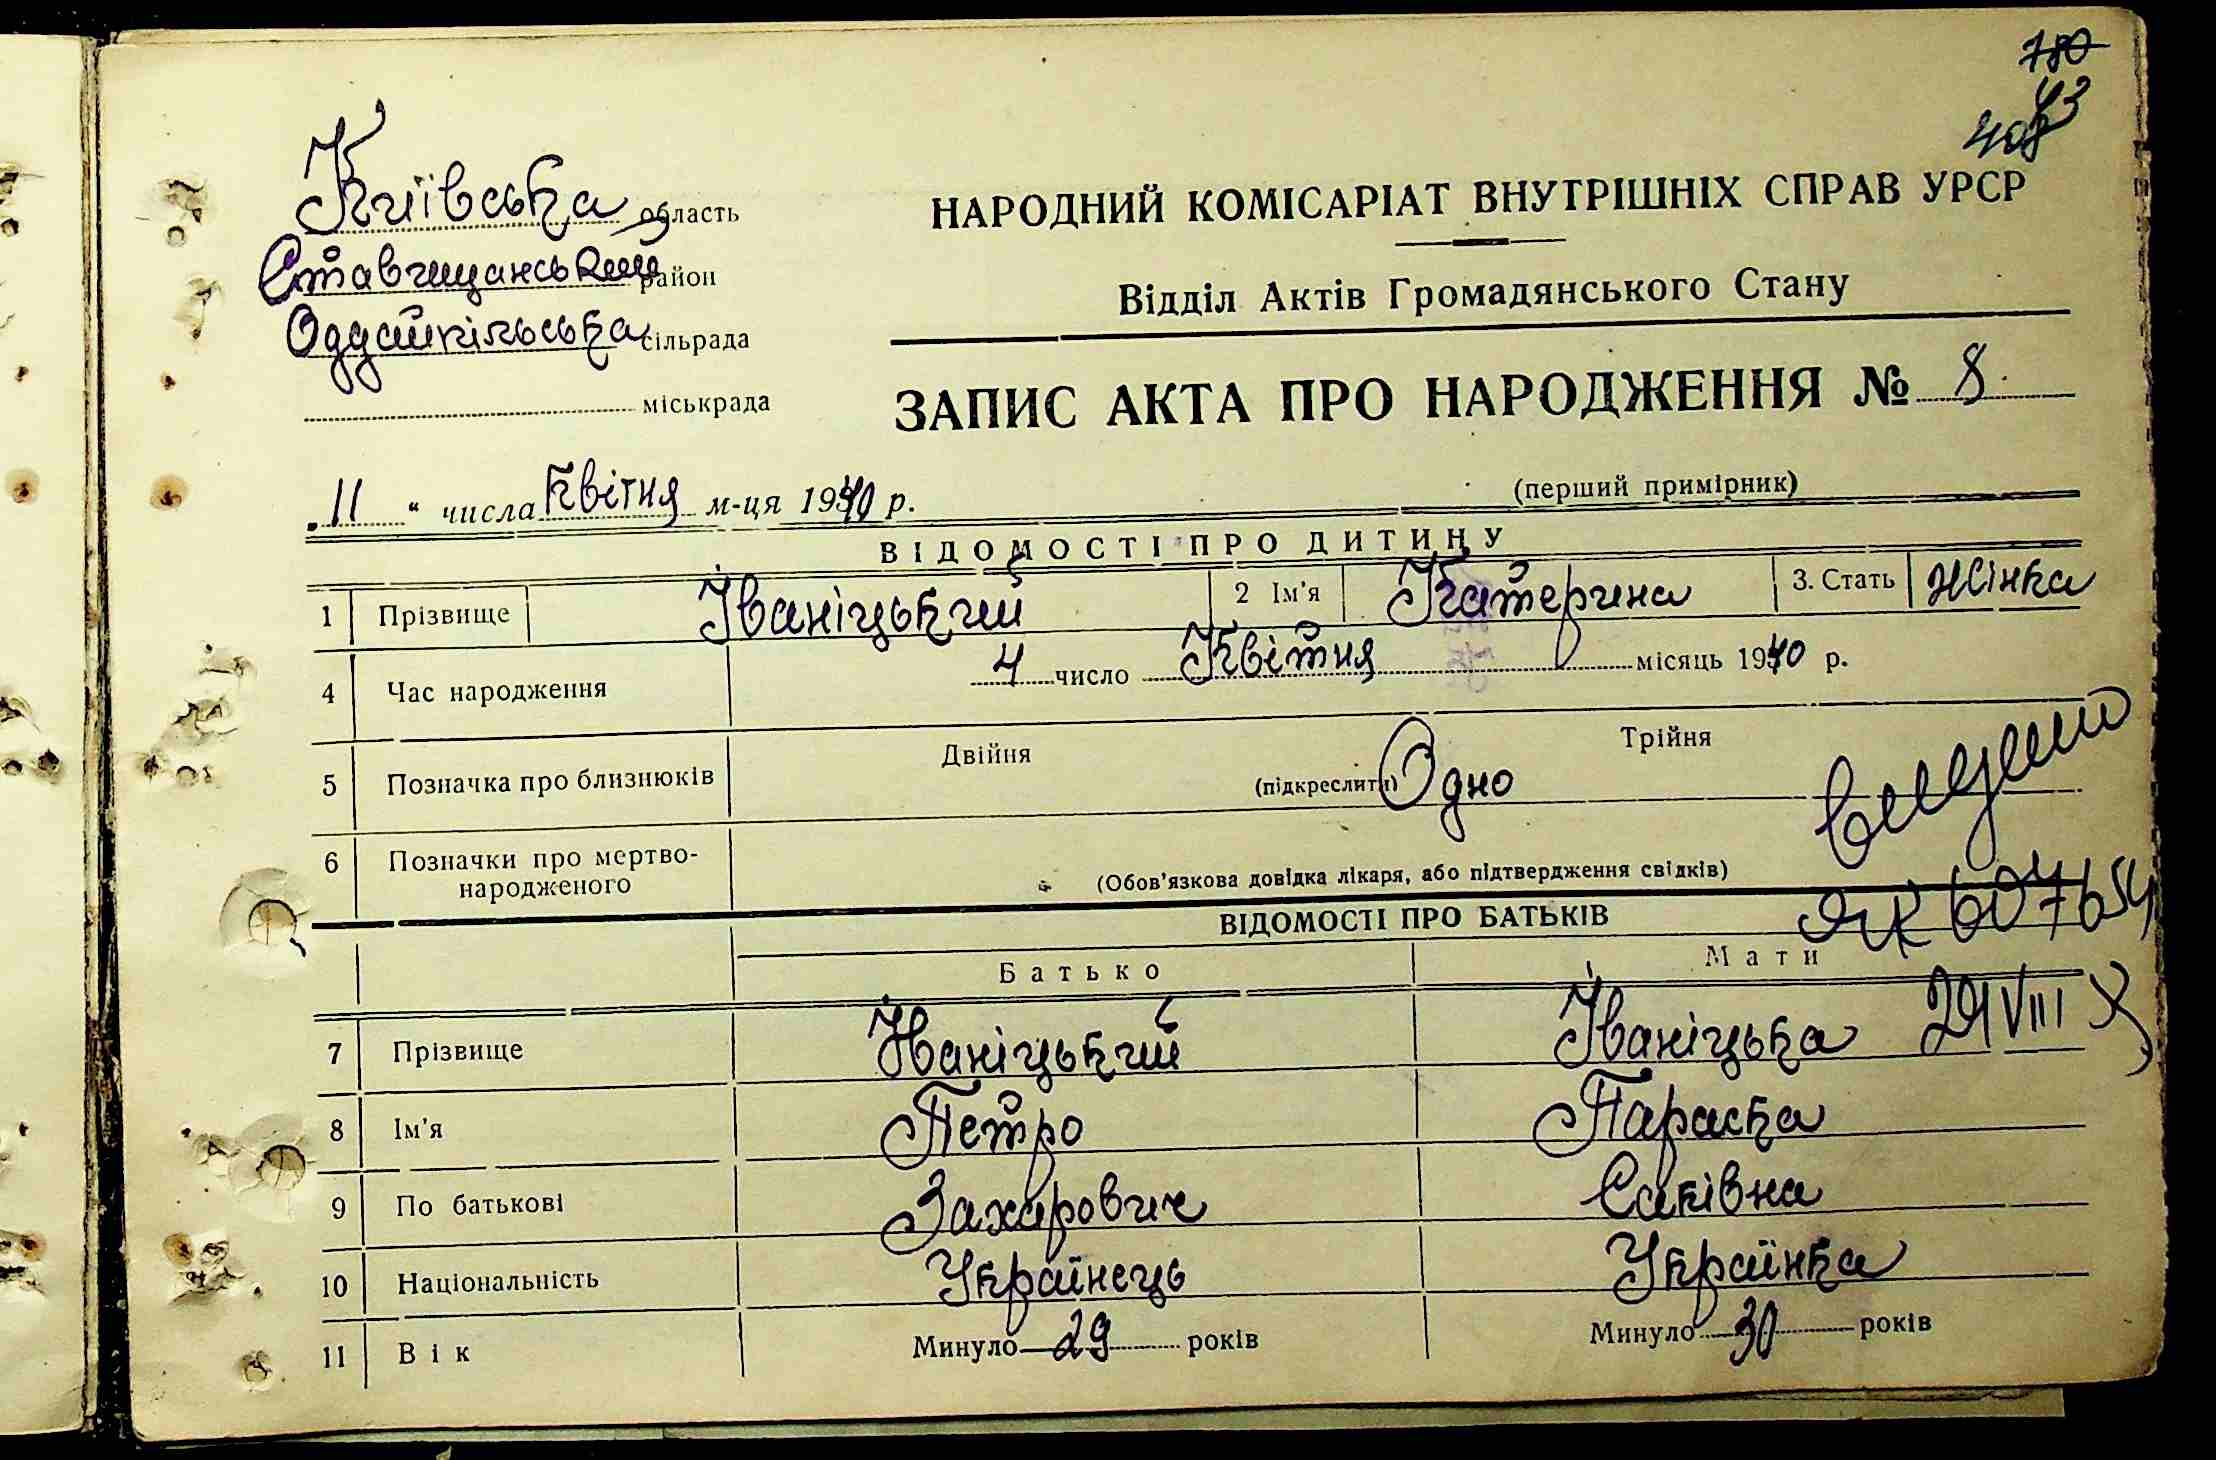 780
Київська область
Ставищанський район
Оддайпільська сільрада
міськрада
НАРОДНИЙ КОМІСАРІАТ ВНУТРІШНІХ СПРАВ УРСР
Відділ Актів Громадянського Стану
ЗАПИС АКТА ПРО НАРОДЖЕННЯ № 8
(перший примірник)
„11“ числа Квітня м-ця 1940 р.
ВІДОМОСТІ ПРО ДИТИНУ
1 Прізвище Іваніцький 2 Ім'я Катерина 3. Стать жінка
4 Час народження 4 число Квітня місяць 1940 р.
5 Позначка про близнюків Двійня (підкреслити) Одно Трійня
6 Позначки про мертво-
народженого (Обов'язкова довідка лікаря, або підтвердження свідків)
ВІДОМОСТІ ПРО БАТЬКІВ
ЯК 607654
Батько Мати
7 Прізвище Іваніцький Іваніцька 29 VIII
8 Ім'я Петро Параска
9 По батькові Захарович Саківна
10 Національність Українець Українка
11 Вік Минуло 29 років Минуло 30 років